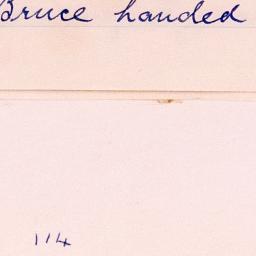 Bruce handed
114